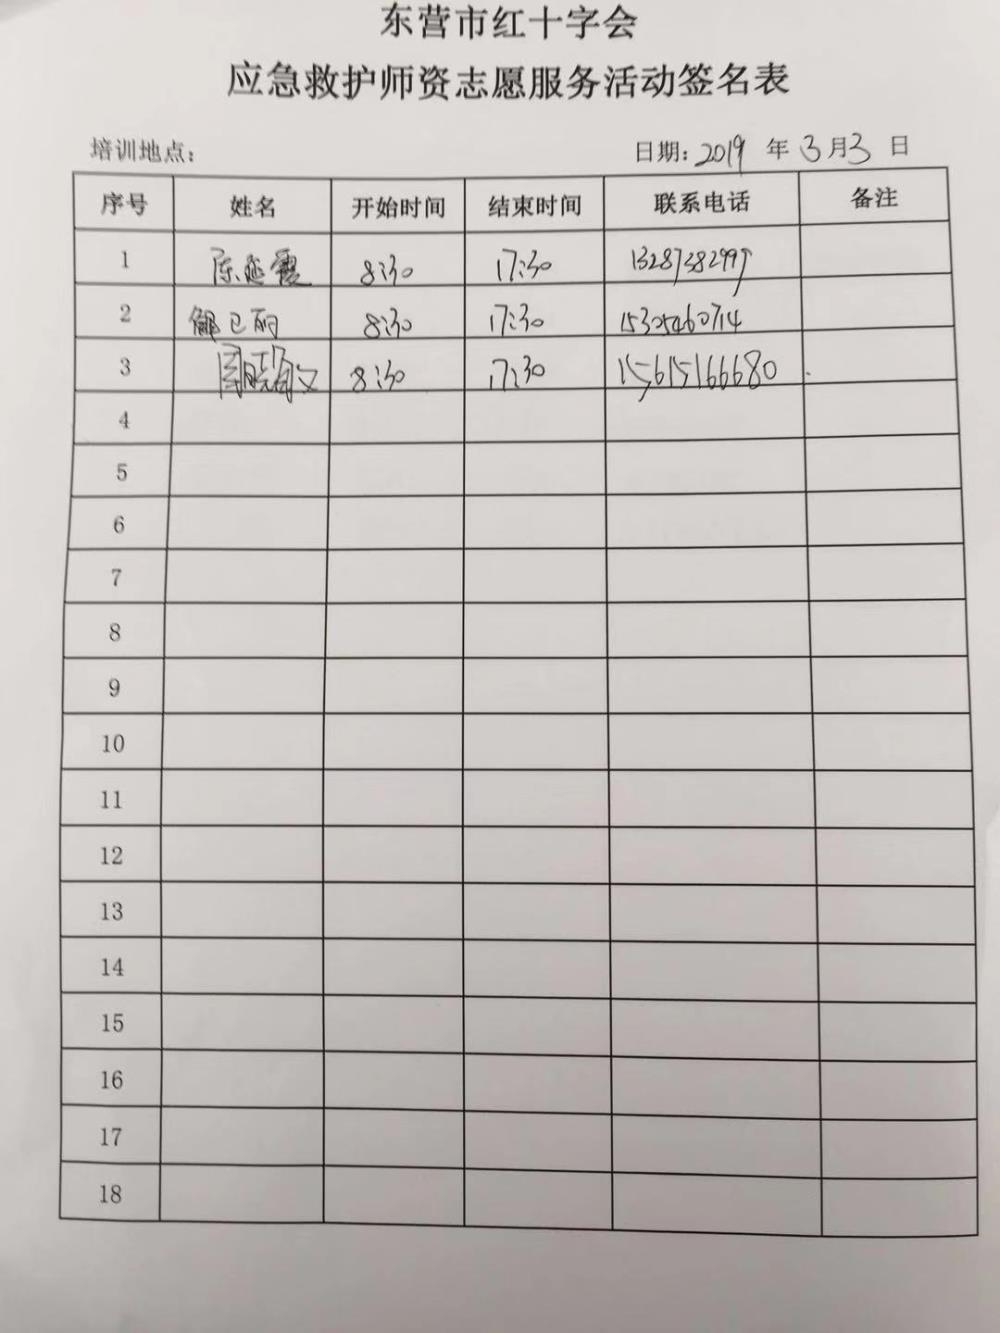 东营市红十字会
应急救护师资志愿服务活动签名表
培训地点: 日期: 2019 年 3月3 日
序号 姓名 开始时间 结束时间 联系电话 备注
1 陈延霞 8:30 17:30
2 8:30 17:30 15305460714
3 8:30 17:30 15615166680
4
5
6
7
8
9
10
11
12
13
14
15
16
17
18